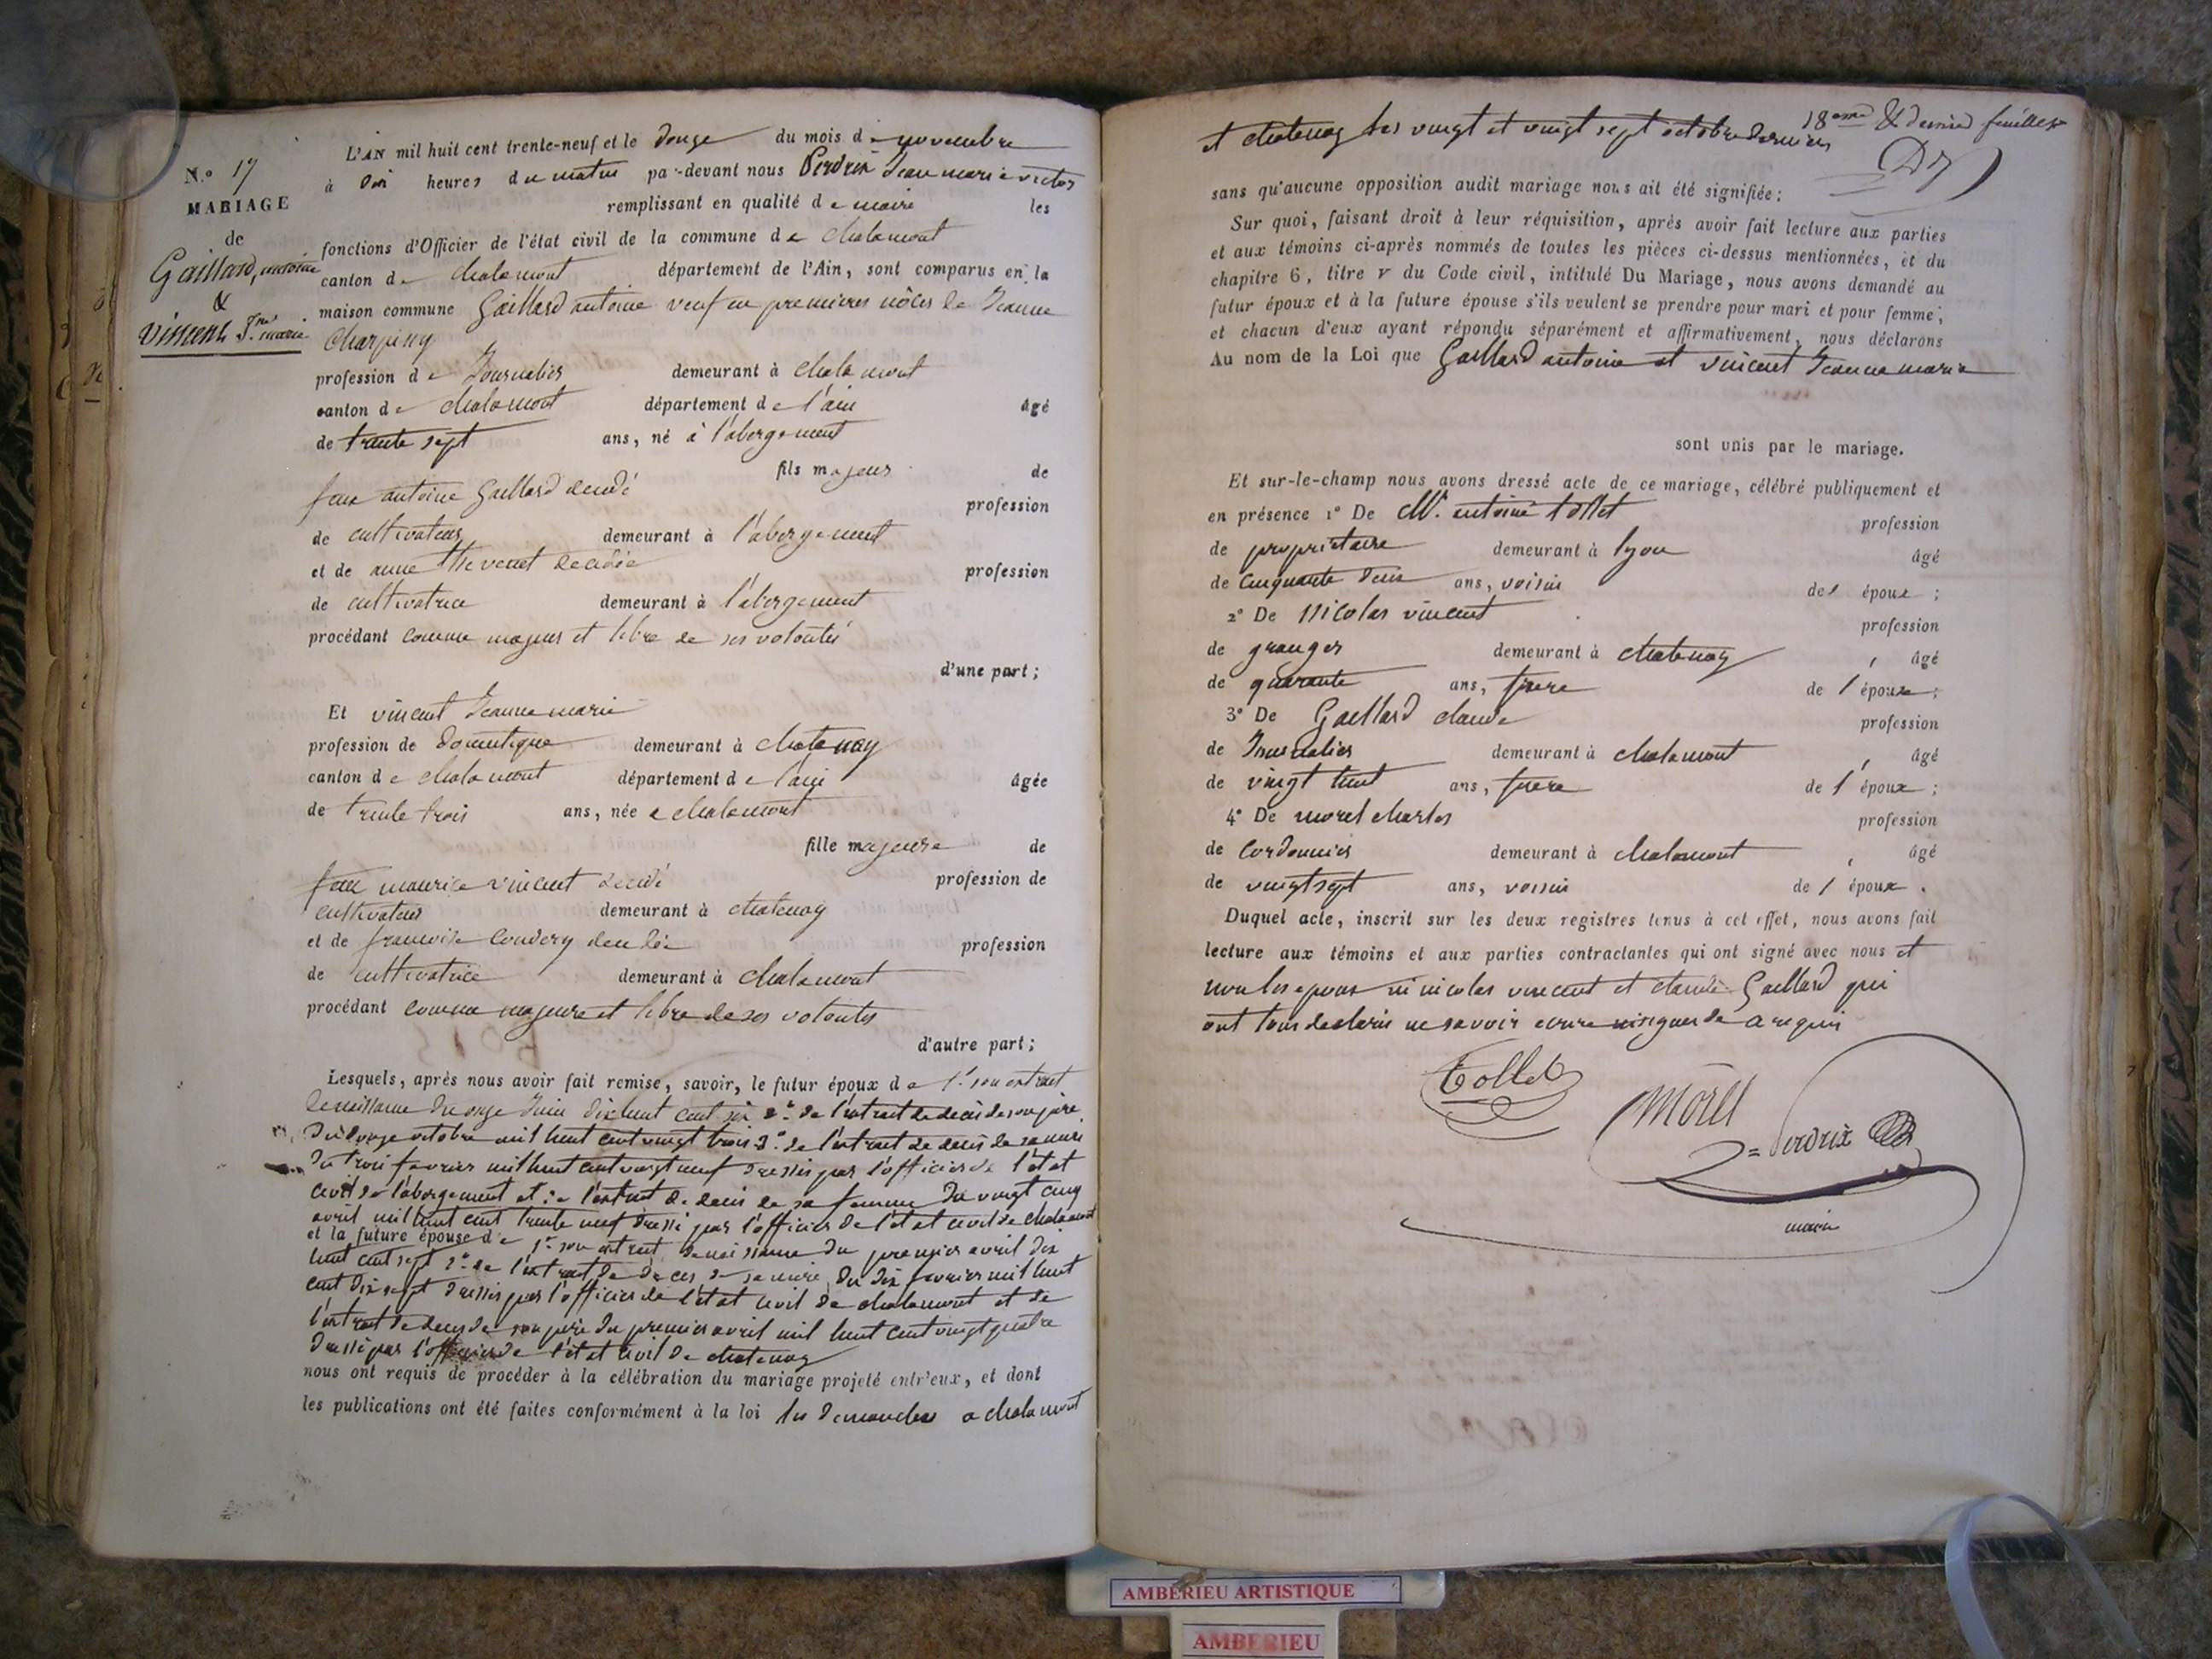 N.º 17
MARIAGE
de
Gaillard, antoine
&
Vincent Jne marie
L'AN mil huit cent trente-neuf et le douze du mois de novembre
à dix heures du matin par-devant nous Perdrix Jean marie victor
remplissant en qualité de maire les
fonctions d'Officier de l'état civil de la commune de chalamont
canton de chalamont département de l'Ain, sont comparus en la
maison commune Gaillard antoine veuf en premieres nôces de Jeanne
Charpiny
profession de Journalier demeurant à chalamont
canton de chalamont département de l'ain âgé
de trente sept ans, né à l'abergement
fils majeur de
feu antoine Gaillard décédé profession
de cultivateur demeurant à l'abergement
et de anne thevenet decedée profession
de cultivatrice demeurant à l'abergement
procédant comme majeur et libre de ses volontés
d'une part;
Et vincent Jeanne marie
profession de domestique demeurant à chatenay
canton de chalamont département de l'ain âgée
de trente trois ans, née a chalamont
fille majeure de
feu maurice vincent decedé profession de
cultivateur demeurant à chatenay
et de francoise Coudery decedée profession
de cultivatrice demeurant à chalamont
procédant comme majeure et libre de ses volontés
d'autre part;
Lesquels, après nous avoir fait remise, savoir, le futur époux de 1º son extrait
de naissance du onze Juin dix huit cent six 2º de l'extrait de deces de son pere
du douze octobre mil huit cent vingt trois 3º de l'extrait de deces de sa mere
du trois fevrier mil huit cent vingt neuf dressés par l'officier de l'état
civil de l'abergement et de l'extrait de deces de sa femme du vingt cinq
avril mil huit cent trente neuf dressé par l'officier de l'état civil de chalamont
et la future épouse de 1º son extrait de naissance du premier avril dix
huit cent sept 2º de l'extrait de deces de sa mere du dix fevrier mil huit
cent dix sept dressés par l'officier de l'état civil de chalamont et de
l'extrait de deces de son pere du premier avril mil huit cent vingt quatre
dressé par l'officier de l'état civil de chatenay
nous ont requis de procéder à la célébration du mariage projeté entr'eux, et dont
les publications ont été faites conformément à la loi les dimanches a chalamont
18eme & dernier feuillet
et chatenay les vingt et vingt sept octobre dernier
sans qu'aucune opposition audit mariage nous ait été signifiée:
Sur quoi, faisant droit à leur réquisition, après avoir fait lecture aux parties
et aux témoins ci-après nommés de toutes les pièces ci-dessus mentionnées, et du
chapitre 6, titre V du Code civil, intitulé Du Mariage, nous avons demandé au
futur époux et à la future épouse s'ils veulent se prendre pour mari et pour femme;
et chacun d'eux ayant répondu séparément et affirmativement, nous déclarons
Au nom de la Loi que Gaillard antoine et vincent Jeanne marie
sont unis par le mariage.
Et sur-le-champ nous avons dressé acte de ce mariage, célébré publiquement et
en présence 1º De Mr. antoine tollet profession
de propriétaire demeurant à lyon âgé
de Cinquante deux ans, voisin des époux;
2º De Nicolas vincent profession
de granger demeurant à chatenay, âgé
de quarante ans, frere de l'épouse;
3º De Gaillard claude profession
de Journalier demeurant à chalamont, âgé
de vingt huit ans, frere de l'époux;
4º De morel charles profession
de Cordonnier demeurant à chalamont, âgé
de vingt sept ans, voisin de l'époux.
Duquel acte, inscrit sur les deux registres tenus à cet effet, nous avons fait
lecture aux témoins et aux parties contractantes qui ont signé avec nous et
non les epoux ni nicolas vincent et claude Gaillard qui
ont tous declarés ne savoir ecrire ni signer de a requis
Tollet
Morel
Perdrix
maire
AMBÉRIEU ARTISTIQUE
AMBERIEU